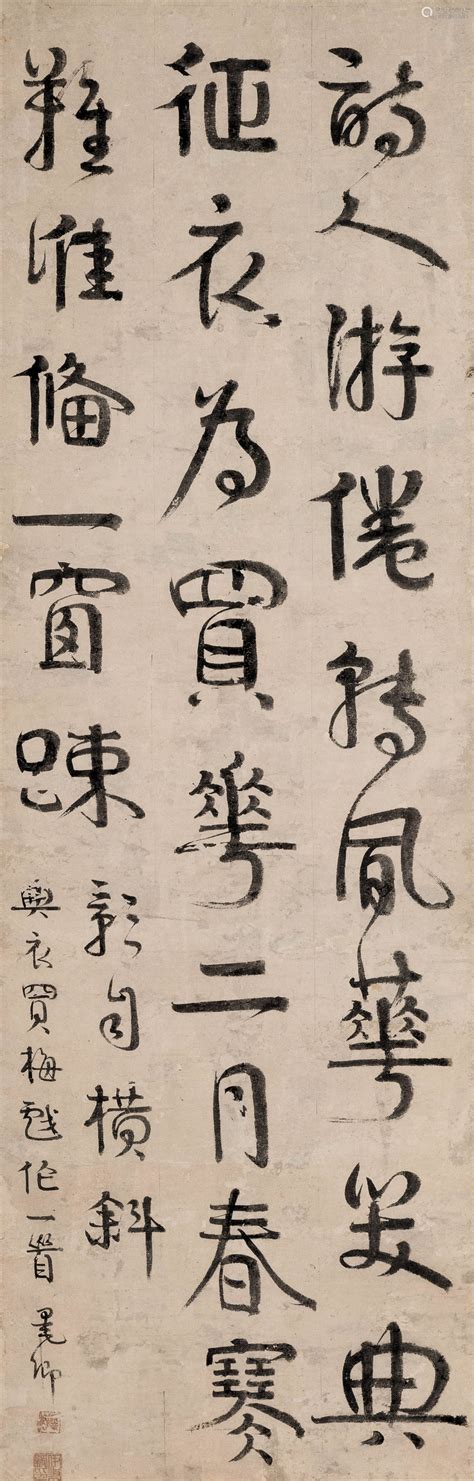 詩人游倦轉風華笑典
征衣為買華二月春寒
難准備一窗踈
影自橫斜
典衣買梅戲作一首 墨卿